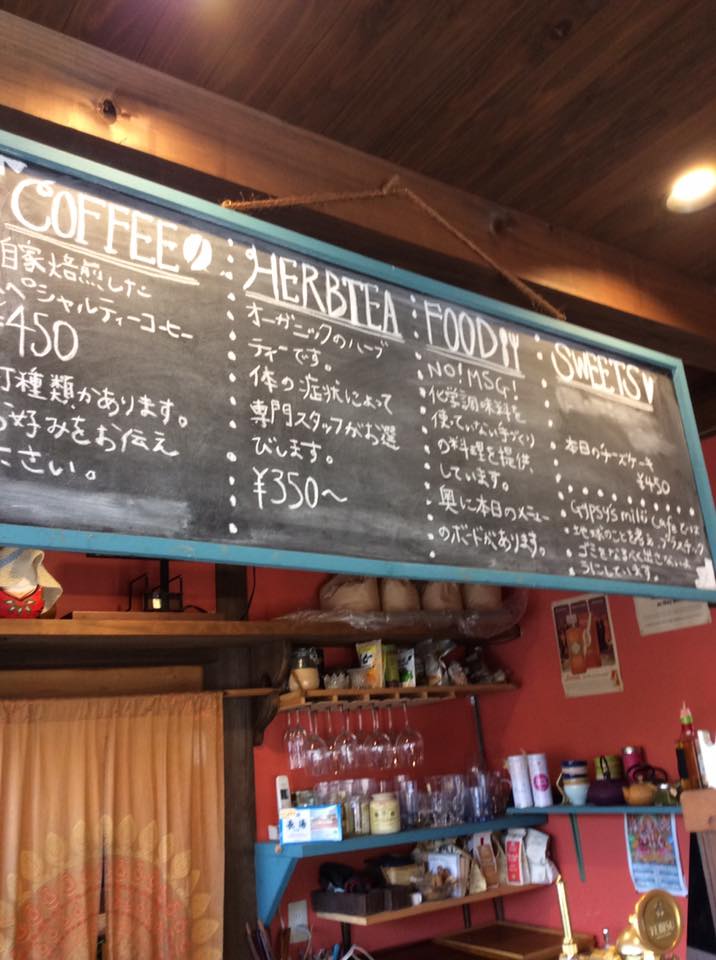 COFFEE
自家焙煎した
ペシャルティーコーヒー
¥450
種類があります。
お好みをお伝え
ださい。
HERBTEA
オーガニックのハーブ
ティーです。
体の症状によって
専門スタッフがお選
びします。
¥350〜
FOOD
NO! MSG!
化学調味料を
使っていない手づくり
の料理を提供、
しています。
奥に本日のメニュー
のボードがあります。
SWEETS
本日のチーズケーキ
¥450
Gypsy's milú Cafeでは
地球のことを考え、プラスチック
ゴミをなるべく出さないよ
うにしています。
長湯
YEBISU